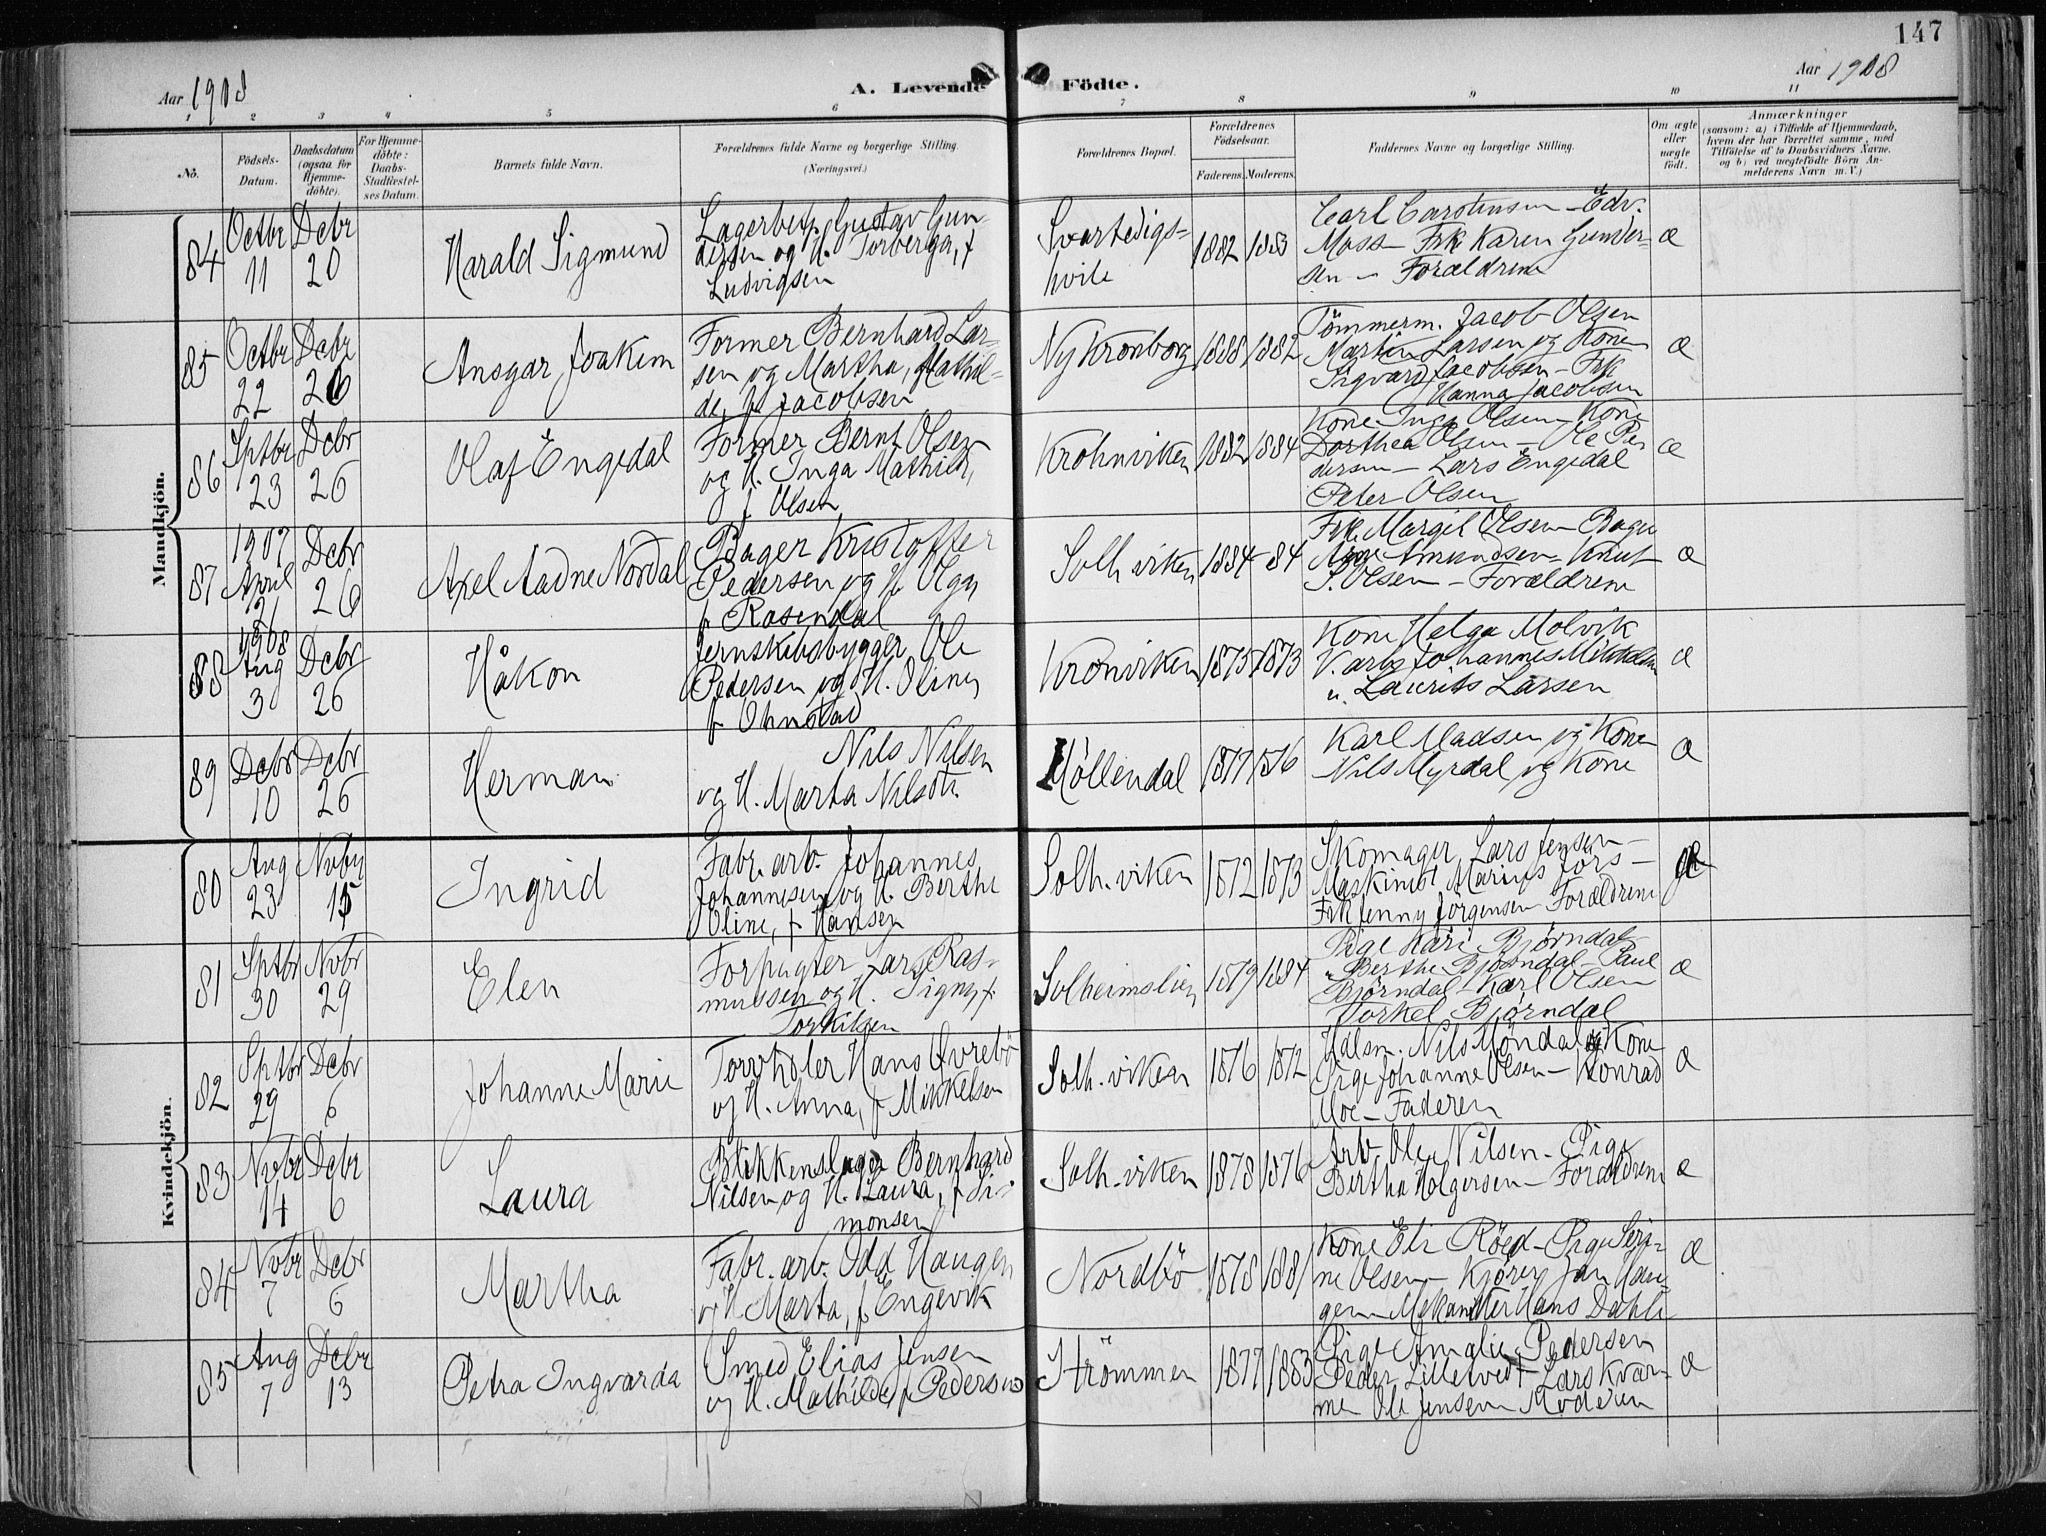 147
Aar 1908
A. Levende Födte.
Aar 1908
1 2 3 4 5 6 7 8 9 10 11
No.
Födsels-Datum.
Daabsdatum (ogsaa for Hjemme-döbte).
For Hjemme-döbte: Daabs-Stadfæstel-ses Datum.
Barnets fulde Navn.
Forældrenes fulde Navne og borgerlige Stilling. (Næringsvei.)
Forældrenes Bopæl.
Forældrenes Födselsaar.
Faderens. Moderens.
Faddernes Navne og borgerlige Stilling.
Om ægte eller uægte födt.
Anmærkninger
(saasom: a) i Tilfælde af Hjemmedaab, hvem der har forrettet samme, med Tilföielse af to Daabsvidners Navne, og b) ved uægtefödte Börn An-melderens Navn m. V.)
Mandkjön.
84 Octbr 11 Dcbr 20 Harald Sigmund
Gustav Gun-
dersen og H. Torberga, f
Ludvigsen
Svartedigs-
hvile
1882 1883
Carl Carstensen - Edv.
Moss - Frk Karen Gunder-
sen - Forældrene
æ
85 Octbr 22 Dcbr 26 Ansgar Joakim
Former Bernhard Lar-
sen og Martha, Mathil-
de, f. Jacobsen
Ny Kronborg
1888 1882
Tömmerm. Jacob Olsen
Martin Larsen og Kone
Sigvard Jacobsen - Frk
Hanna Jacobsen
æ
86 Sptbr 23 Dcbr 26 Olaf Engedal
Former Bernt Olsen
og H. Inga Mathild,
f Olsen
Krohnviken
1882 1884
Kone Inga Olsen - Kone
Dorthea Olsen - Ole Pe-
dersen - Lars Engedal
Peter Olsen
æ
87 1907 April 21 Dcbr 26 Axel Aadne Nordal
Bager Kristoffer
Pedersen og H. Olga
f Rosendal
Solh.viken
1884 84
Frk. Margit Olsen - Bager
Amundsen - Knut
S. Olsen - Forældrene
æ
88 1908 Aug 3 Dcbr 26 Håkon
Jernskibsbygger Ole
Pedersen og H. Olina
f Ohnstad
Kronviken
1875 1873
Kone Helga Molvik
Johannes Mikkelsen
" Laurits Larsen
æ
89 Dcbr 10 Dcbr 26 Herman
Nils Nilsen
og H. Marta Nilsdtr.
Möllendal
1877 1876
Karl Madsen og Kone
Nils Myrdal og Kone
æ
Kvindekjön.
80 Aug 23 Nvbr 15 Ingrid
Fabr. arb. Johannes
Johannesen og H. Berthe
Oline, f Hansen
Solh.viken
1872 1873
Skomager Lars Jensen -
Maskinist Marius Jörs -
Frk Jenny Jörgensen Forældrene
æ
81 Sptbr 30 Nvbr 29 Elen
Forpagter Lars Ras-
mussen og H. Signy f.
Torkilsen
Solheimslien
1879 1884
Pige Kari Bjørndal
" Berthe Bjørndal - Paul
Bjørndal - Karl Olsen
Torkel Bjørndal
æ
82 Sptbr 29 Dcbr 6 Johanne Marie
Torvhdler Hans Øvrebö
og H. Anna, f Mikkelsen
Solh.viken
1876 1872
Nils Möndal og Kone
Pige Johanne Olsen - Konrad
Moe - Faderen
æ
83 Nvbr 14 Dcbr 6 Laura
Blikkenslager Bernhard
Nilsen og H. Laura, f Si-
monsen
Solh.viken
1878 1876
Arb. Ole Nilsen - Pige
Bertha Holgersen - Forældrene
æ
84 Nvbr 7 Dcbr 6 Martha
Fabr. arb. Odd Haugen
og H Marta, f Engevik
Nordbö
1878 1881
Kone Eli Röed - Pige Seri-
ne Olsen - Kjörer Jan Hau-
gen Mekaniker Hans Dahle
æ
85 Aug 7 Dcbr 13 Petra Ingvarda
Smed Elias Jensen
og H. Mathilde, f Pedersen
Strömmen
1877 1883
Pige Amalie Pedersen
Peder Lilletvedt - Lars Kvar-
me Ole Jensen Moderen
æ